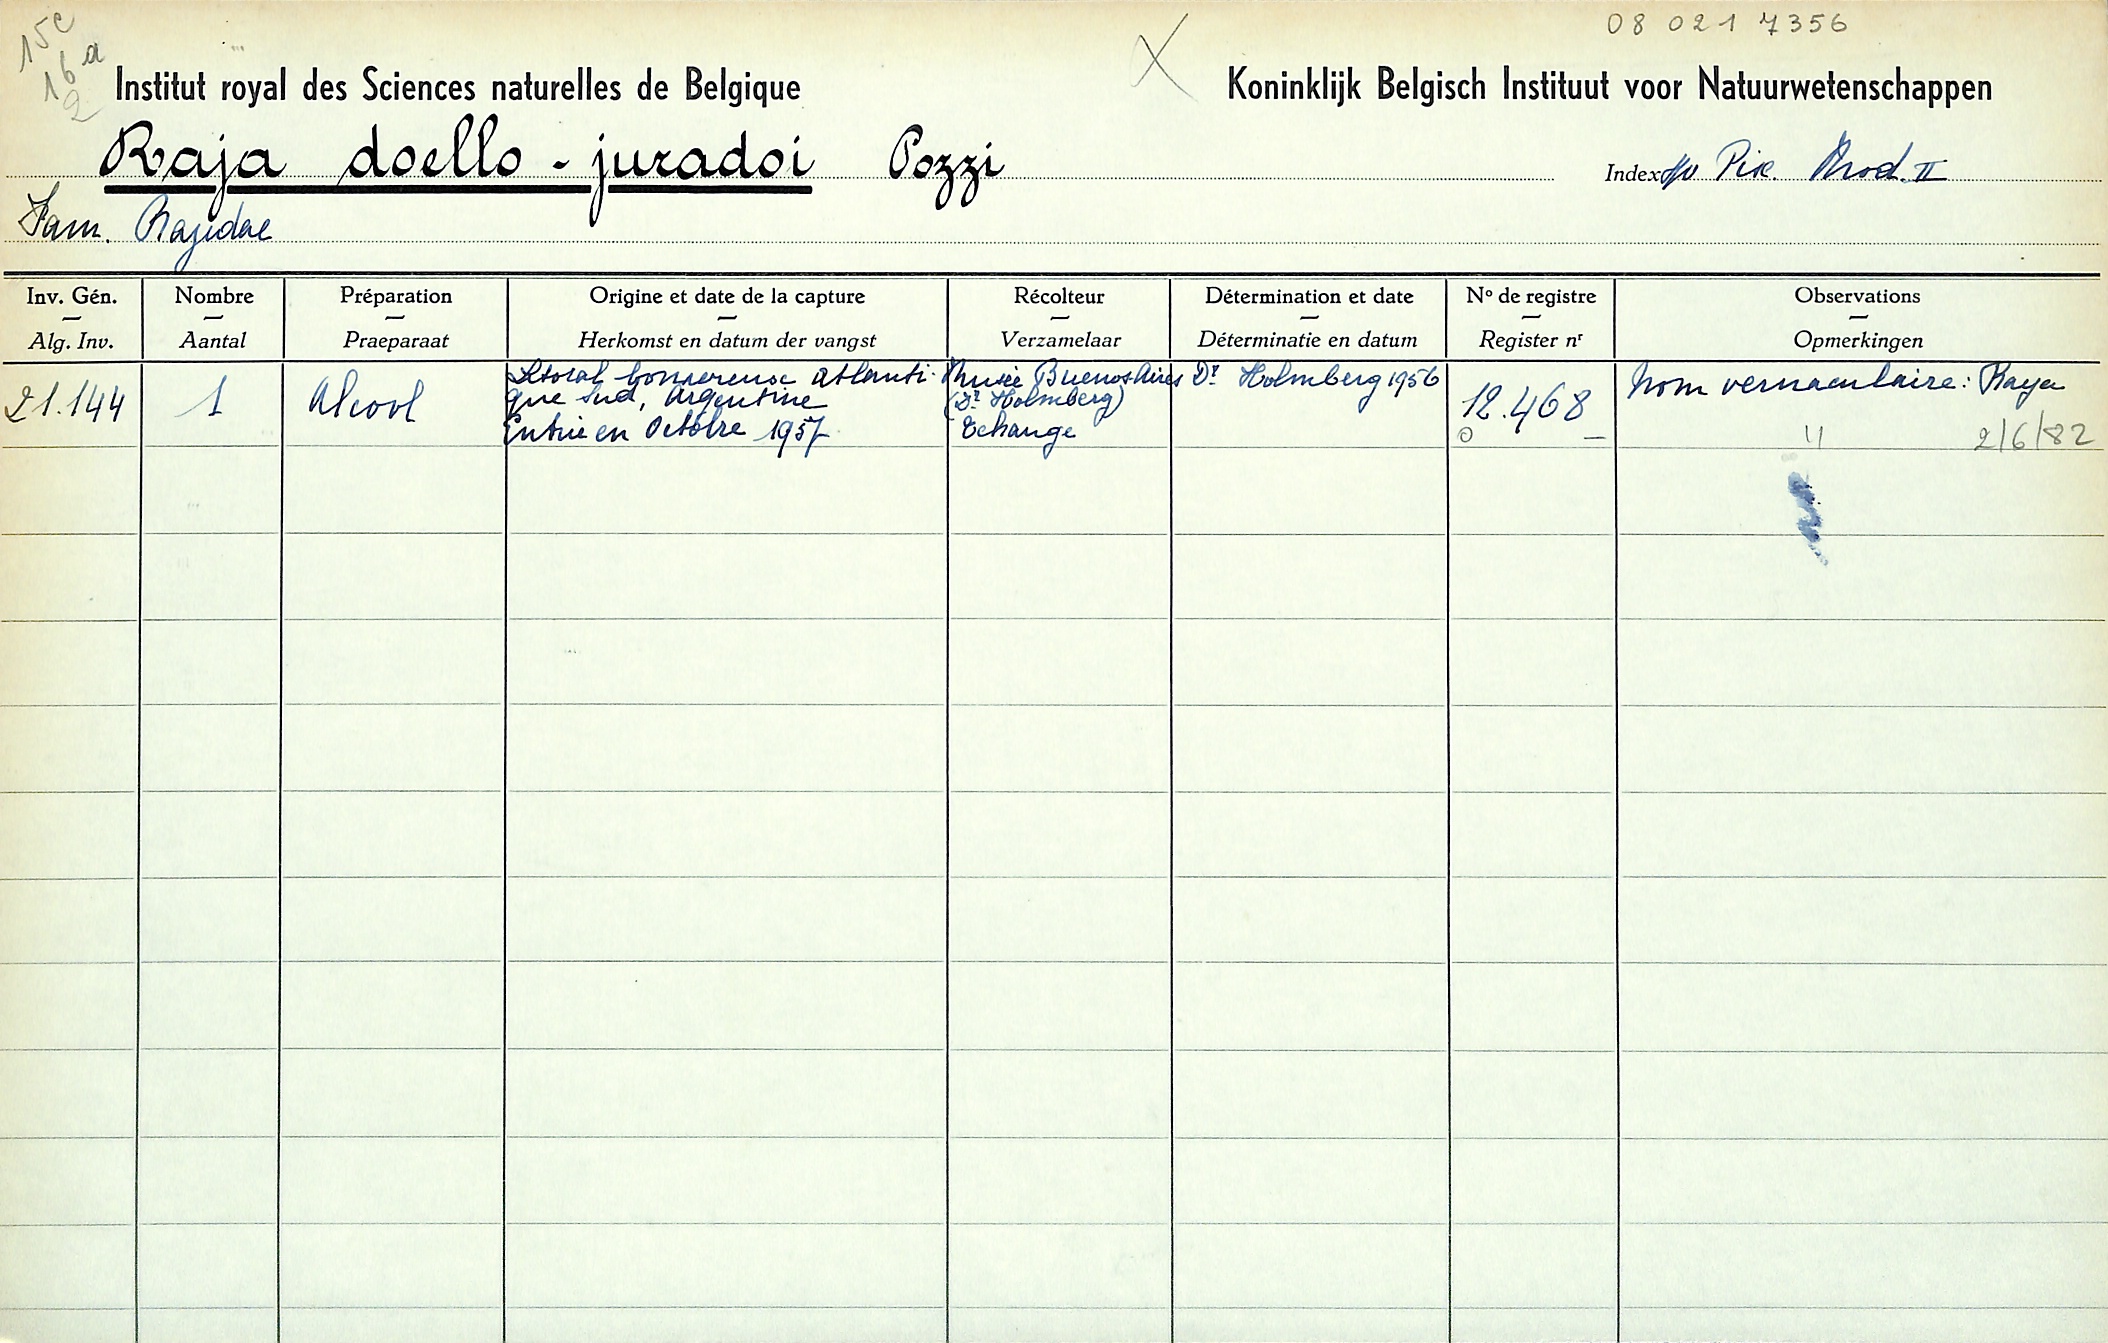 15c
16a
2
08 021 7356
Institut royal des Sciences naturelles de Belgique
Koninklijk Belgisch Instituut voor Natuurwetenschappen
Raja doello-juradoi Pozzi
Index Pisc. Prod. II
Fam. Rajidae
Inv. Gén.
Alg. Inv.
Nombre
Aantal
Préparation
Praeparaat
Origine et date de la capture
Herkomst en datum der vangst
Récolteur
Verzamelaar
Détermination et date
Déterminatie en datum
Nº de registre
Register nr
Observations
Opmerkingen
21.144
1
Alcool
Litoral bonaerense atlanti-
que sud, Argentine
Entrée en Octobre 1957
Musée Buenos Aires
(Dr Holmberg)
Echange
Dr Holmberg 1956
12.468
Nom vernaculaire: Raya
" 2/6/82